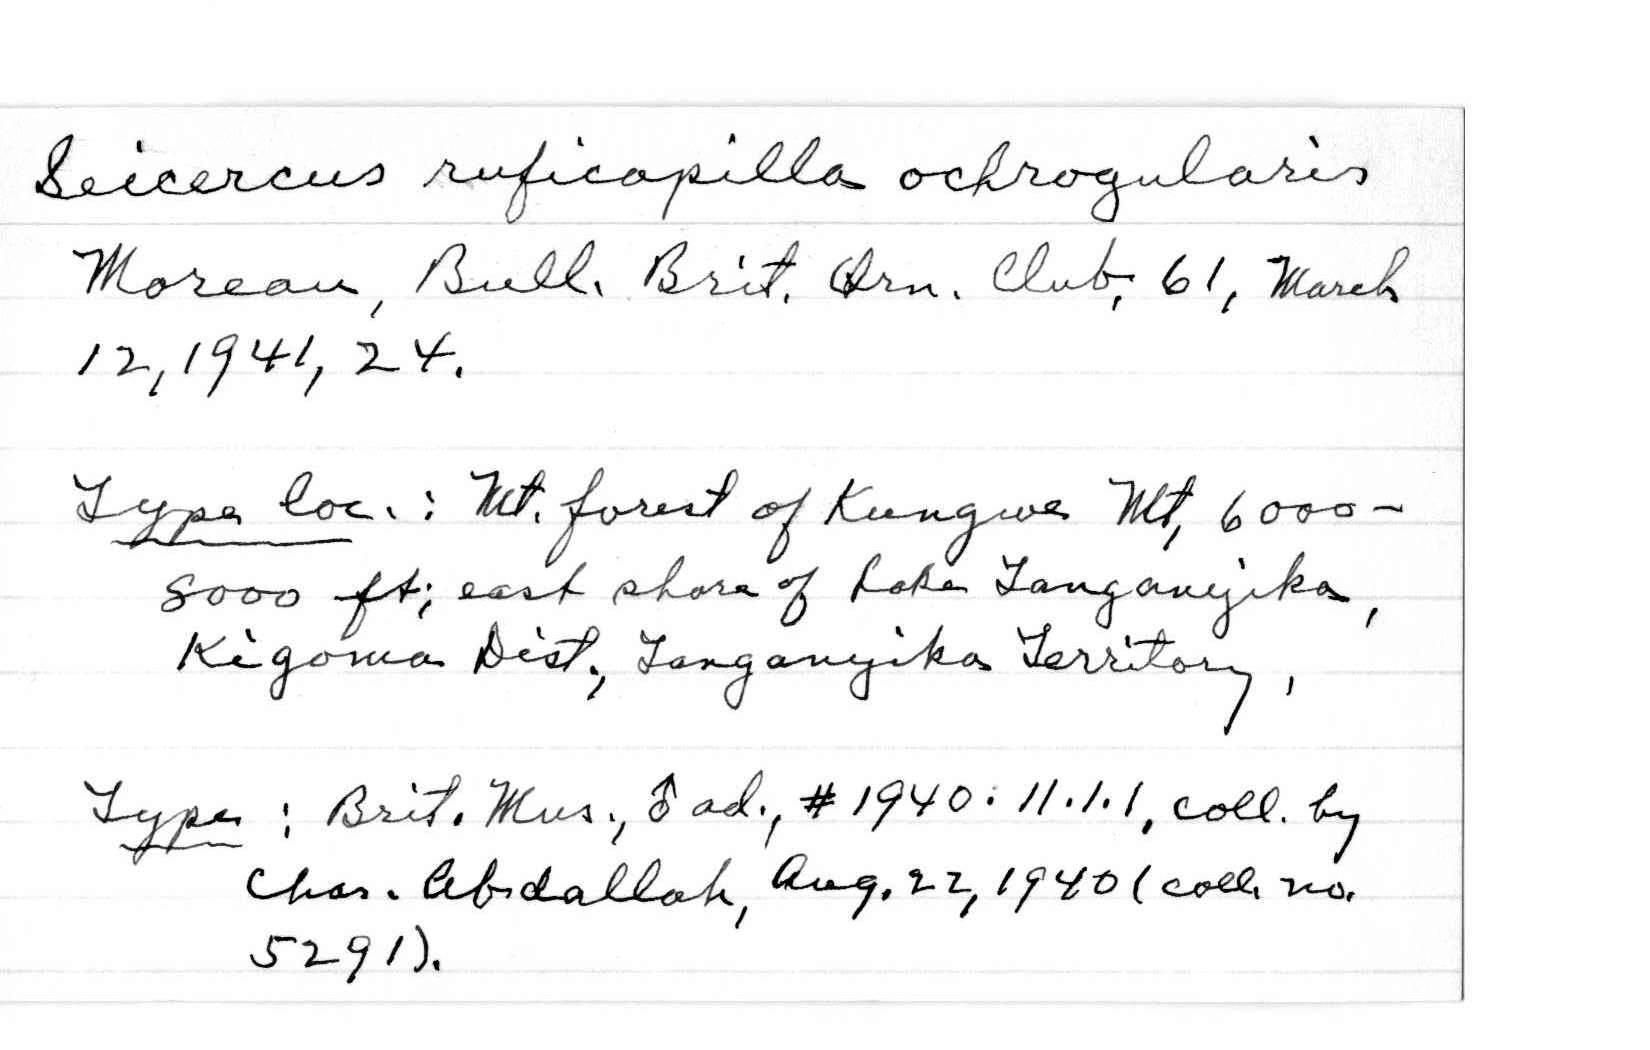 Seicercus ruficapilla ochrogularis
Moreau, Bull. Brit. Orn. Club, 61, March
12, 1941, 24.
Type loc.: Mt. forest of Kungwe Mt, 6000-
8000 ft; east shore of Lake Tanganyika,
Kigoma Dist., Tanganyika Territory,
Type: Brit. Mus., ♂ ad., # 1940.11.1.1, coll. by
Chas. Abdallah, Aug. 22, 1940 (coll. no.
5291).